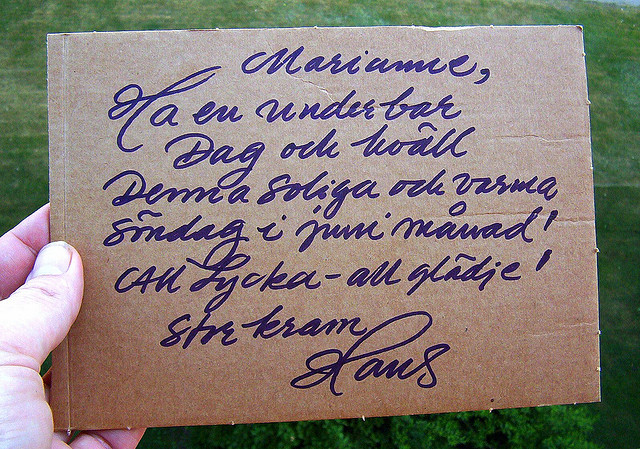 Marianne,
Ha en underbar
Dag och kväll
Denna soliga och varma
söndag i juni månad!
All Lycka - all glädje!
stor kram
Hans